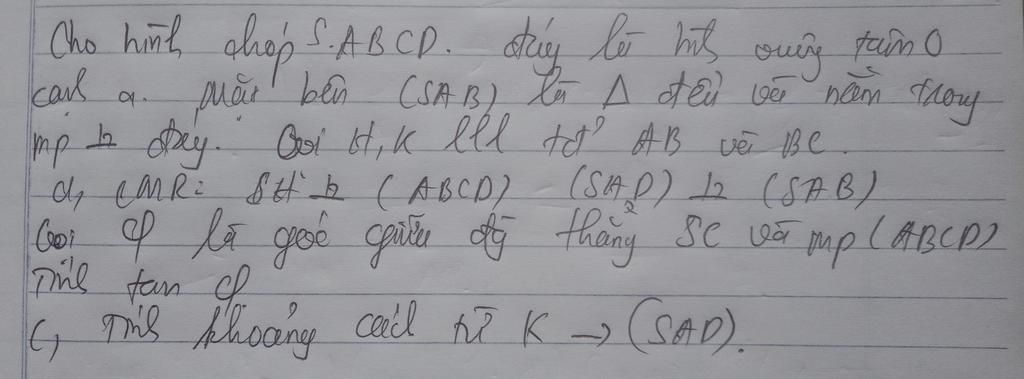 Cho hình chóp S.ABCD. đáy là hình vuông tâm O
cạnh a. Mặt bên (SAB) là Δ đều và nằm trong
mp ⊥ đáy. Gọi H, K lll tđ AB và BC.
a, CMR: SH ⊥ (ABCD) (SAD) ⊥ (SAB)
Gọi φ là góc giữa đg thẳng SC và mp (ABCD)
Tính tan φ
c, Tính khoảng cách từ K → (SAD).